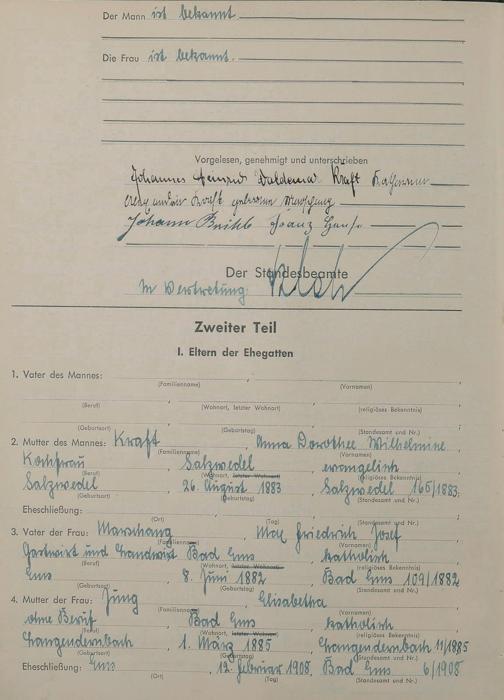 Der Mann ist bekannt.
Die Frau ist bekannt.
Vorgelesen, genehmigt und unterschrieben
Johannes Heinrich Waldemar Kraft
Kraft geborene Marschang
Johann Franz
Der Standesbeamte
In Vertretung:
Zweiter Teil
I. Eltern der Ehegatten
1. Vater des Mannes:
(Familienname) (Vornamen)
(Beruf) (Wohnort, letzter Wohnort) (religiöses Bekenntnis)
(Geburtsort) (Geburtstag) (Standesamt und Nr.)
2. Mutter des Mannes: Kraft, Anna Dorothee Wilhelmine
(Familienname) (Vornamen)
Kochfrau, Salzwedel, evangelisch
(Beruf) (Wohnort, letzter Wohnort) (religiöses Bekenntnis)
Salzwedel, 26. August 1883, Salzwedel 165/1883;
(Geburtsort) (Geburtstag) (Standesamt und Nr.)
Eheschließung:
(Ort) (Tag) (Standesamt und Nr.)
3. Vater der Frau: Marschang, Max Friedrich Josef
(Familienname) (Vornamen)
Gastwirt und Landwirt, Bad Ems, katholisch
(Beruf) (Wohnort, letzter Wohnort) (religiöses Bekenntnis)
Ems, 8. Juni 1882, Bad Ems 109/1882
(Geburtsort) (Geburtstag) (Standesamt und Nr.)
4. Mutter der Frau: Jung, Elisabetha
(Familienname) (Vornamen)
ohne Beruf, Bad Ems, katholisch
(Beruf) (Wohnort, letzter Wohnort) (religiöses Bekenntnis)
Langendernbach, 1. März 1885, Langendernbach 11/1885
(Geburtsort) (Geburtstag) (Standesamt und Nr.)
Eheschließung: Ems, 12. Februar 1908, Bad Ems 6/1908
(Ort) (Tag) (Standesamt und Nr.)